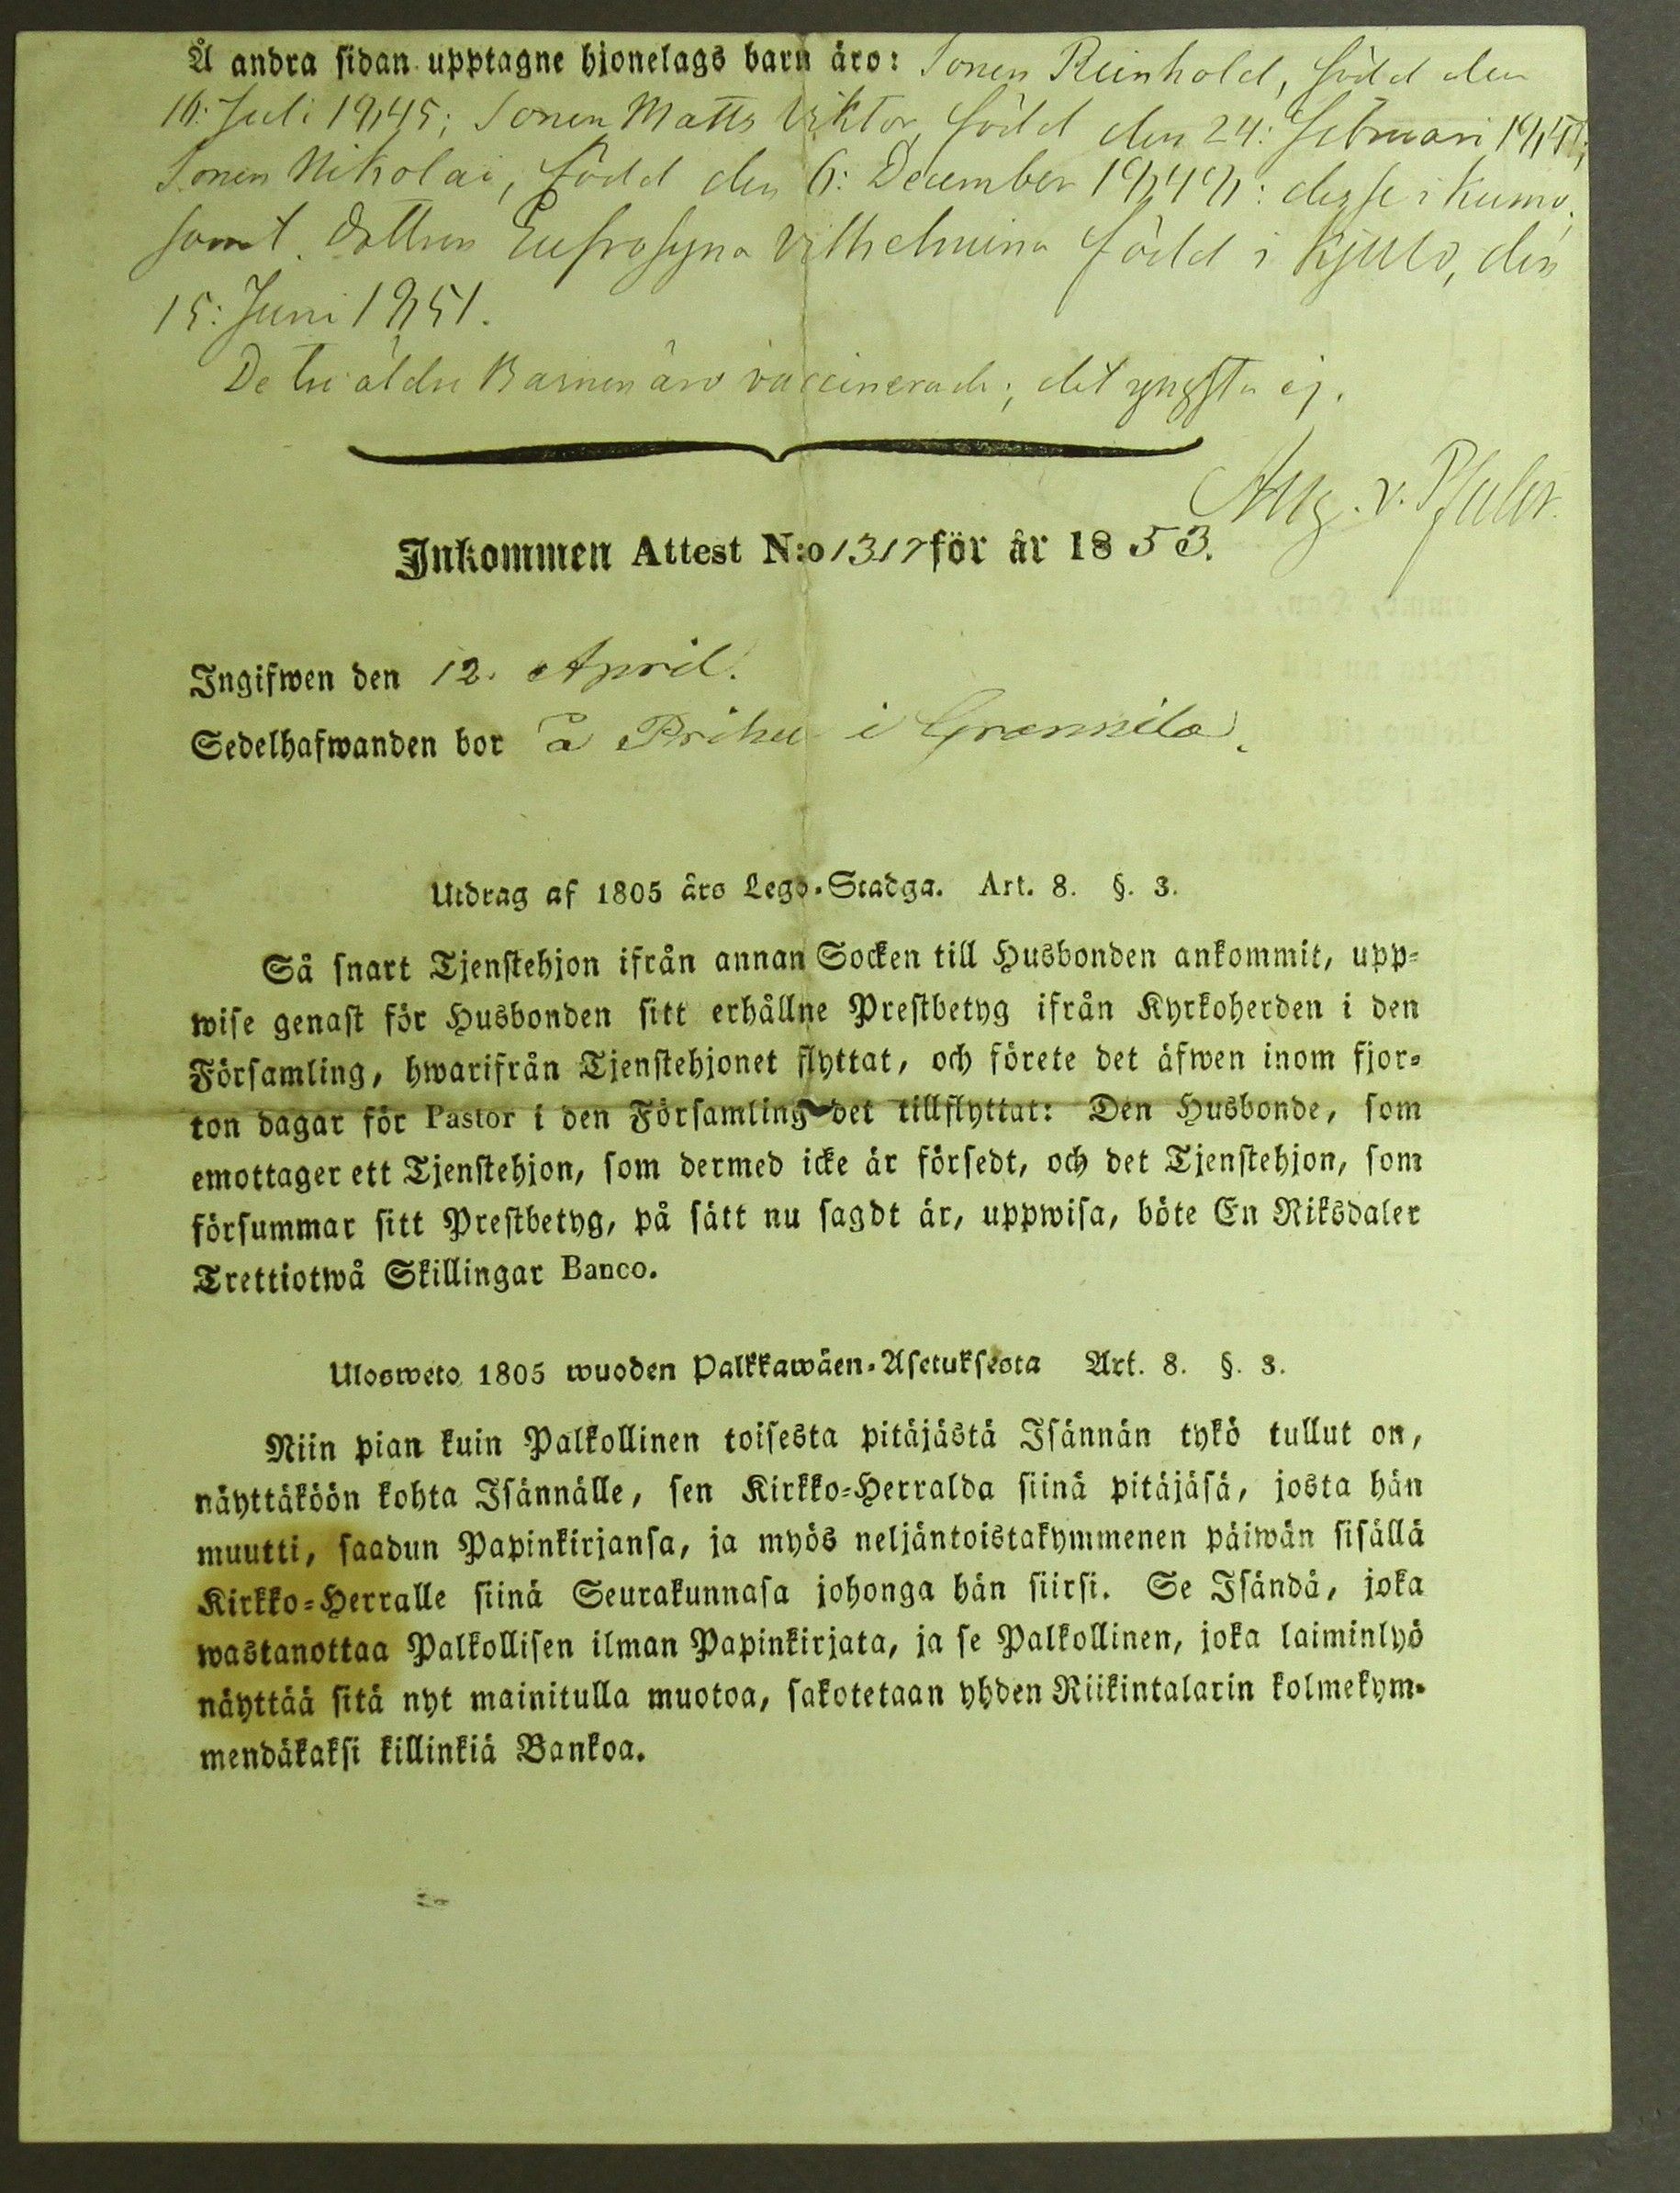 Å andra sidan upptagne hjonelags barn äro: Sonen Reinhold, född den
Juli 1845; Sonen Matts Viktor, född den 24: Februari
Sonen Nikolai, född den 6: December : desse i Kumo,
samt Dottren Eufrosyna Vilhelmina född i Kjulo, den
15: Juni 1851.
De tre äldre Barnen äro vaccinerade; det yngsta ej.
Aug. v.
Inkommen Attest N:o 1317 för år 1853.
Ingifwen den 12. April.
Sedelhafwanden bor å Prihu i
Utdrag af 1805 års Lego-Stadga. Art. 8. §. 3.
Så snart Tjenstehjon ifrån annan Socken till Husbonden ankommit, upp-
wise genast för Husbonden sitt erhållne Prestbetyg ifrån Kyrkoherden i den
Församling, hwarifrån Tjenstehjonet flyttat, och förete det äfwen inom fjor-
ton dagar för Pastor i den Församling det tillflyttat: Den Husbonde, som
emottager ett Tjenstehjon, som dermed icke är försedt, och det Tjenstehjon, som
försummar sitt Prestbetyg, på sätt nu sagdt är, uppwisa, böte En Riksdaler
Trettiotwå Skillingar Banco.
Ulosweto 1805 wuoden Palkkawäen-Asetuksesta Art. 8. §. 3.
Niin pian kuin Palkollinen toisesta pitäjästä Isännän tykö tullut on,
näyttäköön kohta Isännälle, sen Kirkko-Herralda siinä pitäjäsä, josta hän
muutti, saadun Papinkirjansa, ja myös neljäntoistakymmenen päiwän sisällä
Kirkko-Herralle siinä Seurakunnasa johonga hän siirsi. Se Isändä, joka
wastanottaa Palkollisen ilman Papinkirjata, ja se Palkollinen, joka laiminlyö
näyttää sitä nyt mainitulla muotoa, sakotetaan yhden Riikintalarin kolmekym-
mendäkaksi killinkiä Bankoa.